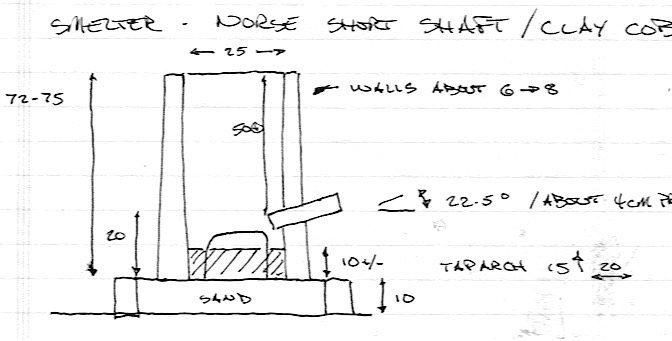 SMELTER - NORSE SHORT SHAFT / CLAY COB
← 25 →
72-75
WALLS ABOUT 6 → 8
50
22.5° / ABOUT 4CM
20
10 +/-
TAP ARCH 15 ↑ 20
SAND
10